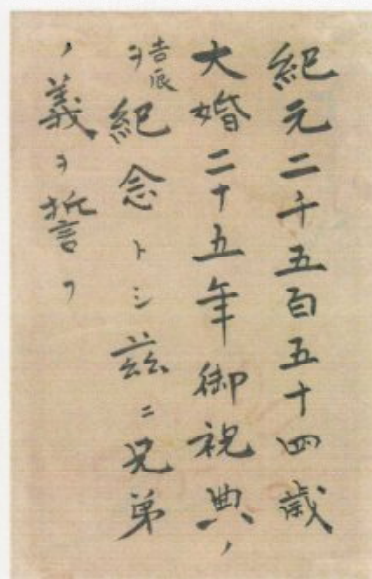 紀元二千五百五十四歳
大婚二十五年御祝典ノ
吉辰ヲ紀念トシ茲ニ兄弟
ノ義ヲ誓フ